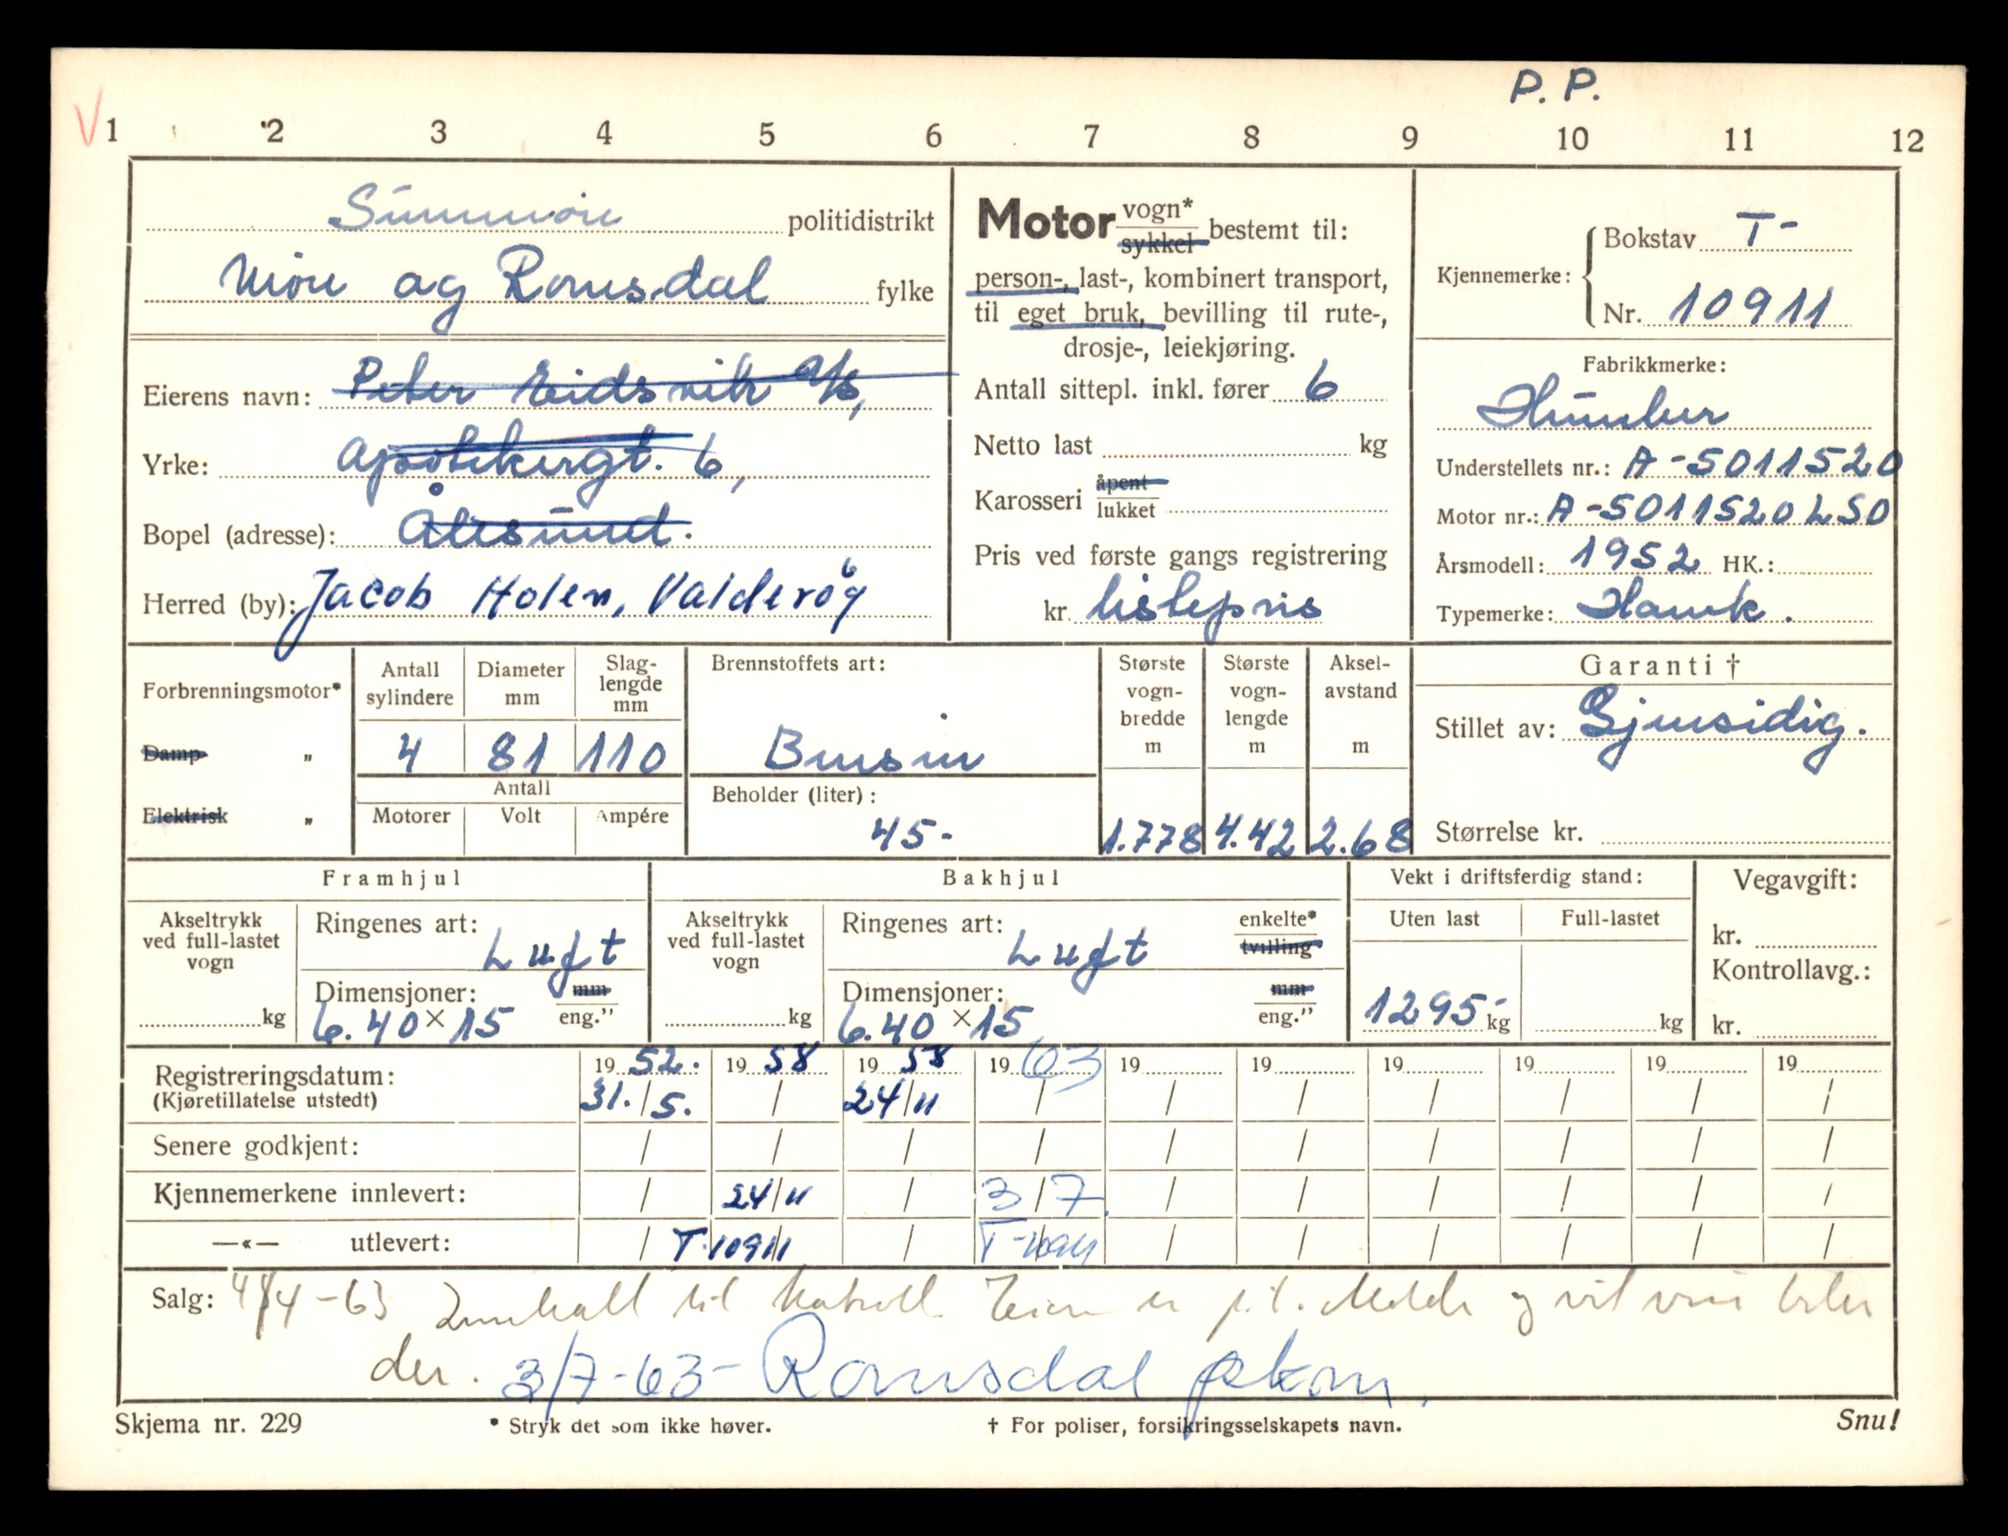 P. P.
V 1 2 3 4 5 6 7 8 9 10 11 12
Sunnmøre politidistrikt
Møre og Romsdal fylke
Eierens navn: Peter Eidsvik A/S,
Yrke: Apotekergt. 6,
Bopel (adresse): Ålesund.
Herred (by): Jacob Holen, Valderøy
Motor vogn* sykkel bestemt til:
person-, last-, kombinert transport,
til eget bruk, bevilling til rute-,
drosje-, leiekjøring.
Antall sittepl. inkl. fører 6
Netto last kg
Karosseri åpent lukket
Pris ved første gangs registrering
kr. listepris
Kjennemerke: Bokstav T-
Nr. 10911
Fabrikkmerke:
Humber
Understellets nr.: A-5011520
Motor nr.: A-5011520LSO
Årsmodell: 1952 HK.:
Typemerke: Hawk.
Forbrenningsmotor*
Damp- "
Elektrisk "
Antall sylindere 4
Diameter mm 81
Slag-lengde mm 110
Antall
Motorer Volt Ampére
Brennstoffets art:
Bensin
Beholder (liter):
45-
Største vogn-bredde m 1.778
Største vogn-lengde m 4.42
Aksel-avstand m 2.68
Garanti †
Stillet av: Gjensidig.
Størrelse kr.
Framhjul
Akseltrykk ved full-lastet vogn kg
Ringenes art: Luft
Dimensjoner: mm eng."
6.40 × 15
Bakhjul
Akseltrykk ved full-lastet vogn kg
Ringenes art: Luft enkelte* tvilling
Dimensjoner: mm eng."
6.40 × 15
Vekt i driftsferdig stand:
Uten last Full-lastet
1295- kg kg
Vegavgift:
kr.
Kontrollavg.:
kr.
Registreringsdatum: 19 52. 19 58 19 58 19 63 19 19 19 19 19 19
(Kjøretillatelse utstedt) 31./5. / 24/11 / / / / / / /
Senere godkjent: / / / / / / / / / /
Kjennemerkene innlevert: / 24/11 / 3/7 / / / / / /
—«— utlevert: / T-10911 / T-10911 / / / / / /
Salg: 4/4-63 Innkalt til kontroll. Eieren er p.t. Molde og vil vise bilen
der. 3/7-63- Romsdal pkm.
Skjema nr. 229
* Stryk det som ikke høver.
† For poliser, forsikringsselskapets navn.
Snu!